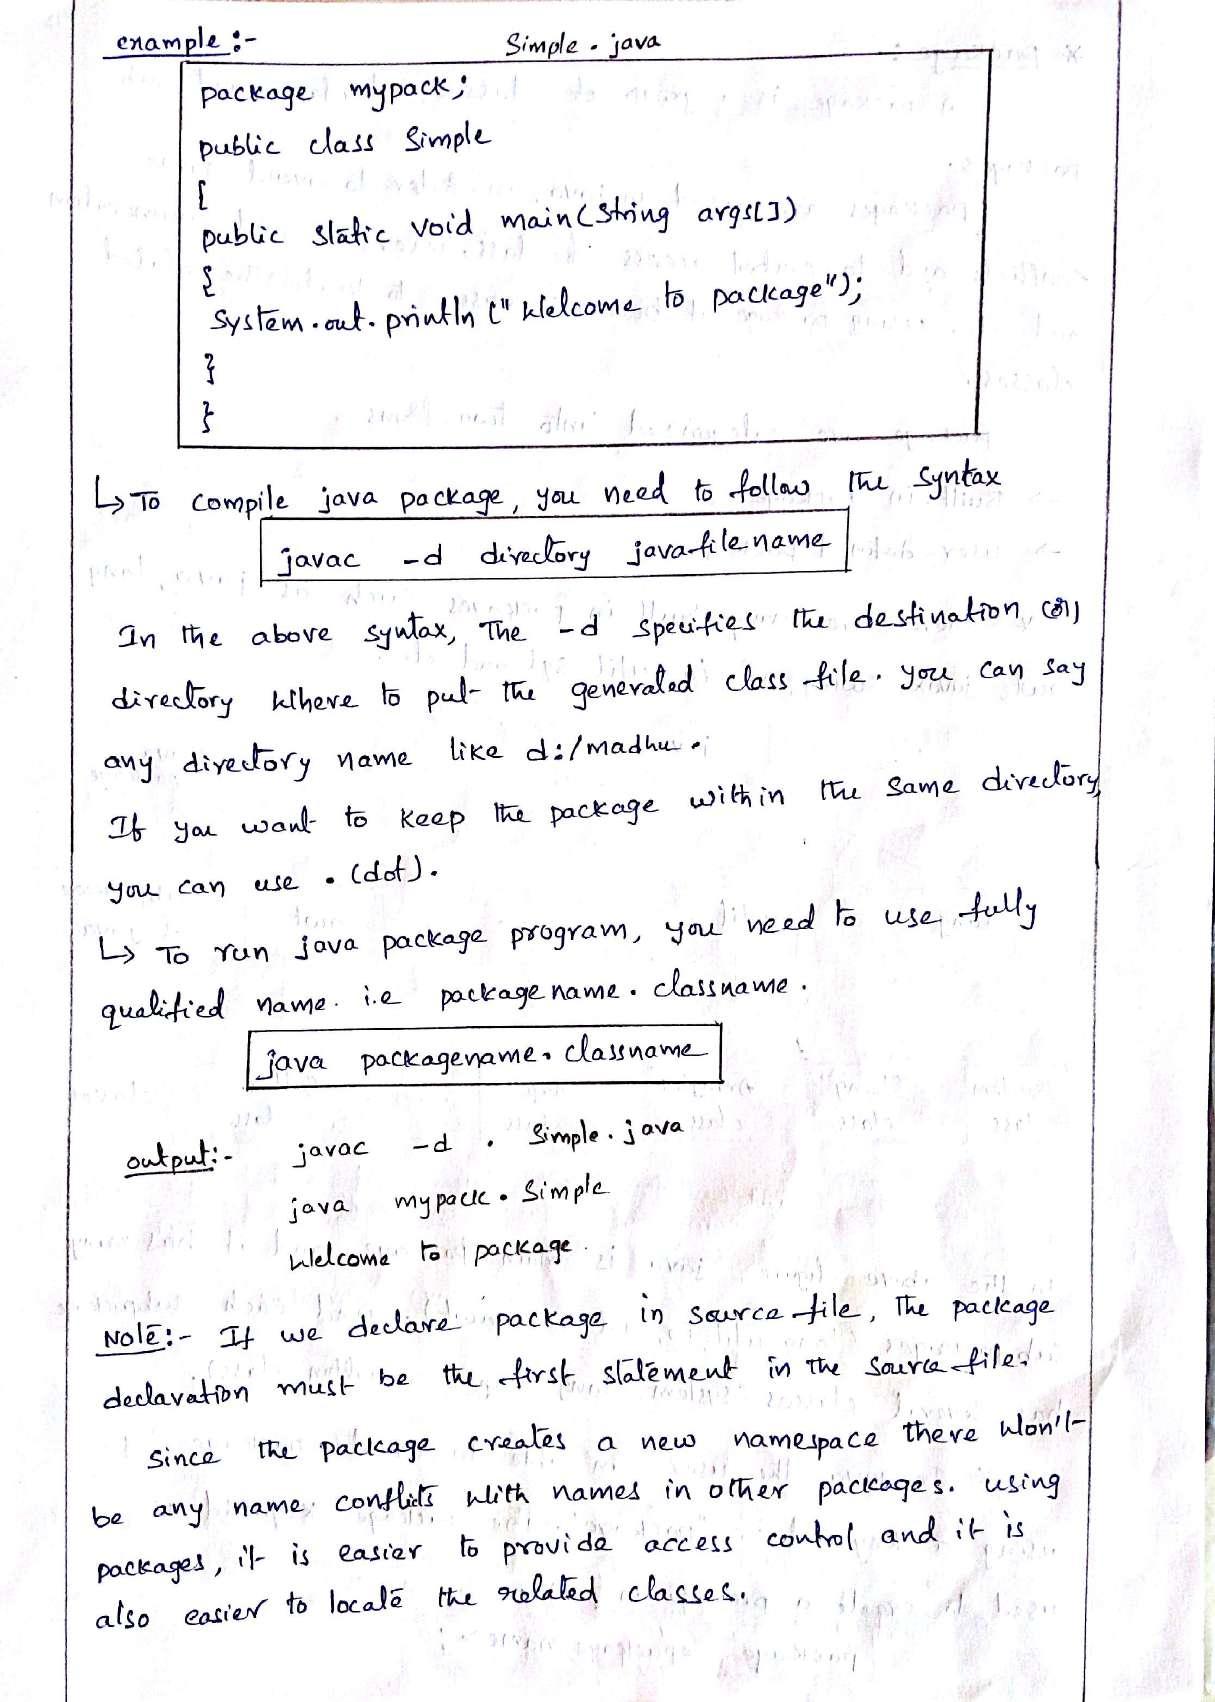 example :-
Simple . java
package mypack;
public class Simple
{
public static void main(String args[])
{
System.out.println ("Welcome to package");
}
}
↳ To compile java package, you need to follow the syntax
javac -d directory javafilename
In the above syntax, The -d specifies the destination (or)
directory Where to put the generated class file. you can say
any directory name like d:/madhu.
If you want to keep the package within the same directory,
you can use . (dot).
↳ To run java package program, you need to use fully
qualified name. i.e package name . classname .
java packagename. classname
output:- javac -d . Simple . java
java mypack . Simple
Welcome to package .
Note:- If we declare package in source file, The package
declaration must be the first statement in the source file.
Since the package creates a new namespace there Won't
be any name conflicts With names in other packages. using
packages, it is easier to provide access control and it is
also easier to locate the related classes.